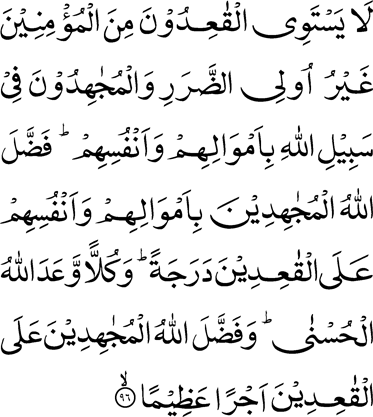 لَا يَسْتَوِى الْقٰعِدُوْنَ مِنَ الْمُؤْمِنِيْنَ
غَيْرُ اُولِى الضَّرَرِ وَالْمُجٰهِدُوْنَ فِىْ
سَبِيْلِ اللهِ بِاَمْوَالِهِمْ وَاَنْفُسِهِمْ ؕ فَضَّلَ
اللهُ الْمُجٰهِدِيْنَ بِاَمْوَالِهِمْ وَاَنْفُسِهِمْ
عَلَى الْقٰعِدِيْنَ دَرَجَةً ؕ وَكُلًّا وَّعَدَ اللهُ
الْحُسْنٰى ؕ وَفَضَّلَ اللهُ الْمُجٰهِدِيْنَ عَلَى
الْقٰعِدِيْنَ اَجْرًا عَظِيْمًا ۙ﴿۹۶﴾